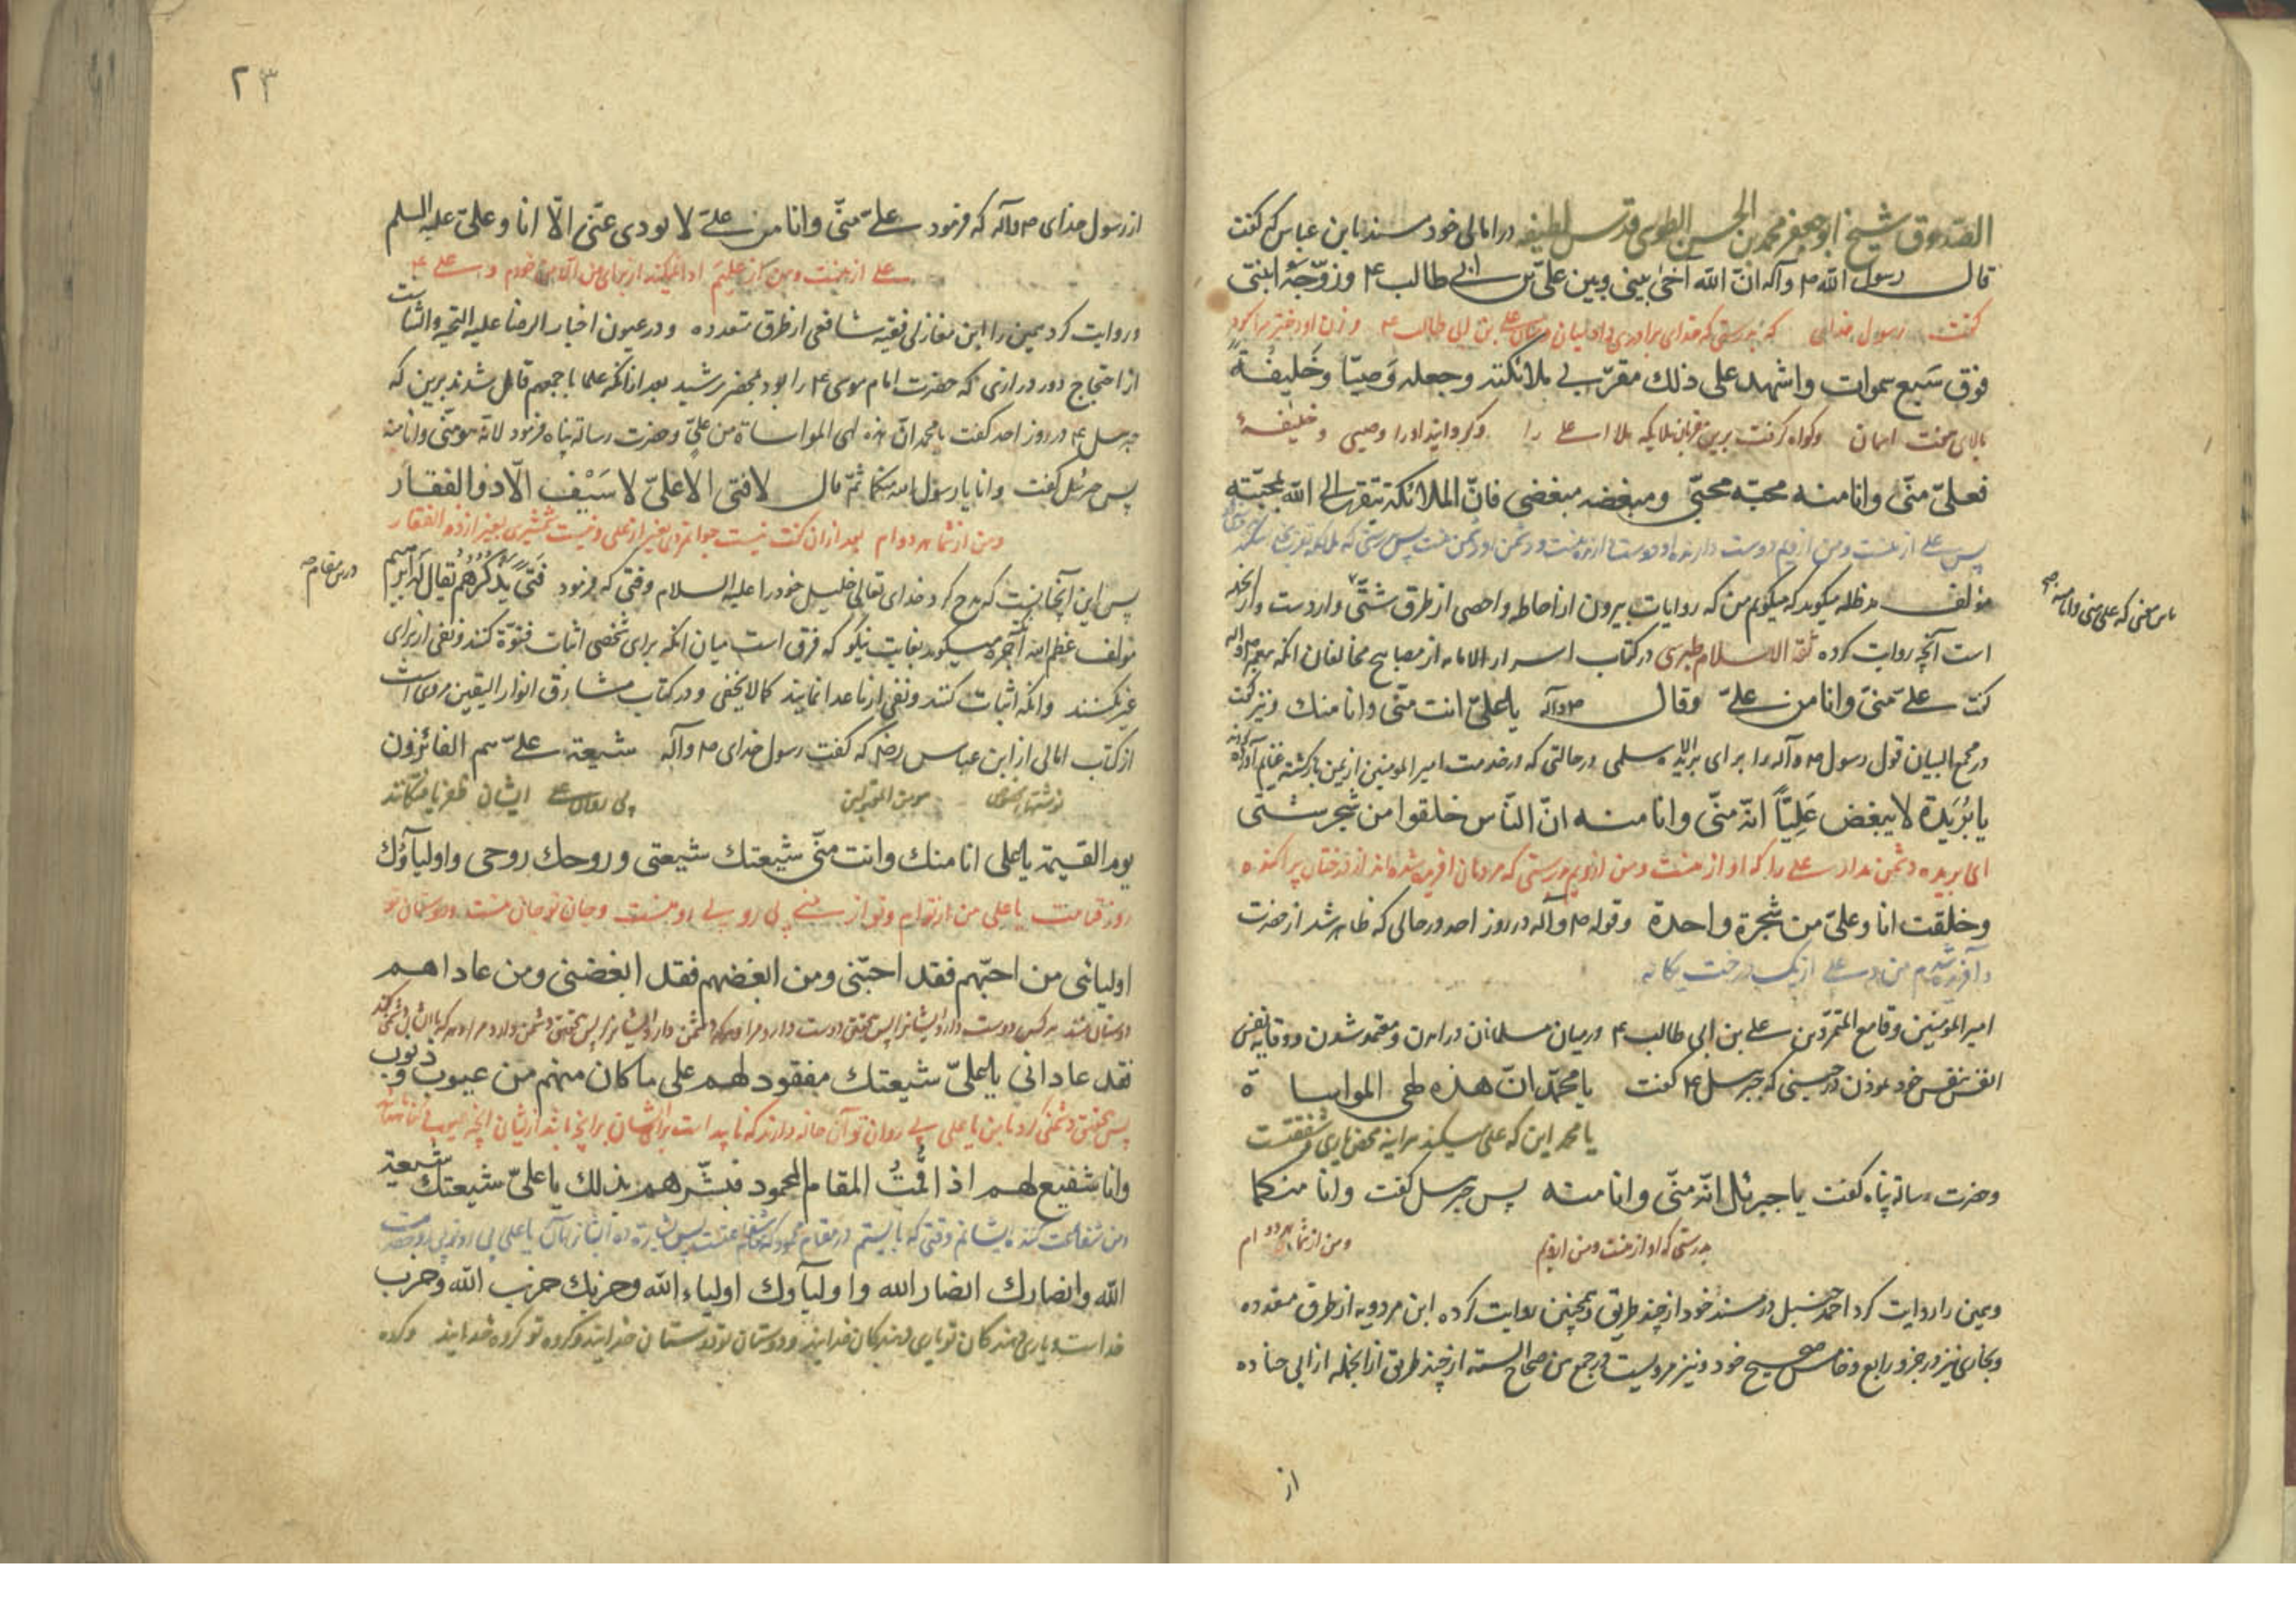 الصدوق شیخ ابو جعفر محمد بن الحسن الطوسی قدس لطیفه در امالی خود مسند بابن عباس که گفت
قال رسول الله ص وآله ان الله آخی بینی وبین علی بن ابی طالب ع وزوجه ابنتی
گفت رسول خدای که بدرستی که خدای برادری داد میان من و میان علی بن ابی طالب ع و زن او دختر مرا کرد
فوق سبع سموات واشهد علی ذلک مقربی ملائکته وجعله وصیا وخلیفة
بالای هفت اسمان وکواه کرفت برین مقربان ملایکه ملا اعلی را وکردانید اورا وصیی وخلیفهٔ
فعلی منی وانا منه محبه محبی ومبغضه مبغضی فان الملائکة تتقرب الی الله بمحبته
پس علی از منست ومن ازویم دوست دارنده او دوست دارنده منست ودشمن او دشمن منست پس بدرستی که ملائکه تقرب
مؤلف مد ظله میکوید که میکویم من که روایات بیرون از احاطه واحصی از طرق شتی واردست وازانجمله
باین معنی که علی منی وانا منه
است آنچه روایت کرده ثقة الاسلام طبرسی در کتاب اسرار الامامه از مصابیح مخالفان انکه پیغمبر ص واله
کفت علی منی وانا من علی وقال ص وآله یا علی انت منی وانا منک ونیز کفت
در مجمع البیان قول رسول ص وآله را برای بریده اسلمی در حالتی که در خدمت امیر المومنین از یمن بازکشته غنایم آورده
یا بُرَیدة لا یبغض عَلِیّاً انه منی وانا منه ان الناس خلقوا من شجر شتی
ای بریده دشمن مدار علی را که او از منست ومن ازویم بدرستی که مردمان افریده شده اند از درختان پراکنده
وخلقت انا وعلی من شجرة واحدة وقوله ص وآله در روز احد در حالی که ظاهر شد از حضرت
وآفریده شدم من و علی از یک درخت یکانه
امیر المومنین وقامع المتمردین علی بن ابی طالب ع در میان مسلمانان در آمدن ومعتمد شدن ووقایه نفس
انفس نفس خود نمودن در حینی که جبرئیل ع کفت یا محمد ان هذه لهی المواساة
یا محمد این که علی میکند هراینه محض یاری وشفقتست
وحضرت رسالة پناه کفت یا جبرئل انه منی وانا منه پس جبرئل کفت وانا منکما
بدرستی که او از منست ومن ازویم ومن از شما هر دو ام
وهمین را روایت کرد احمد حنبل در مسند خود از چند طریق وهمچنین روایت کرده ابن مردویه از طرق متعدده
وبخاری نیز در جزو رابع وخامس صحیح خود ونیز مرویست در جمع بین صحاح السته از چند طریق ازانجمله از ابی جناده
از
۲۳
از رسول خدای ص وآله که فرمود علی منی وانا من علی لا یودی عنی الا انا وعلی علیه السلم
علی از منست ومن از علیم ادا نمیکند از برای من الا من خودم و علی ع
وروایت کرد همین را ابن مغازلی فقیه شافعی از طرق متعدده ودر عیون اخبار الرضا علیه التحیة والثناست
از احتجاج دور درازی که حضرت امام موسی ع را بود بمحضر رشید بعد ازانکه علما باجمعهم قائل شدند برین که
جبرئل ع در روز احد کفت یا محمد ان هذه لهی المواساة من علی وحضرت رسالة پناه فرمود لانه منی وانا منه
پس جبرئل کفت وانا یا رسول الله منکما ثم قال لا فتی الا علی لا سَیْف الا ذو الفقار
ومن از شما هر دو ام بعد ازان کفت نیست جوانمردی بغیر از علی ونیست شمشیری بغیر از ذو الفقار
پس این آنچنانست که مدح کرد خدای تعالی خلیل خود را علیه السلام وقتی که فرمود فتی یذکرهم یقال له ابرهیم
درین مقام
مؤلف عظم الله اجره میکوید بغایت نیکو که فرق است میان انکه برای شخصی اثبات فتوة کنند ونفی از برای
غیر نکنند وانکه اثبات کنند ونفی از ما عدا نمایند کما لا یخفی ودر کتاب مشارق انوار الیقین مرویست
از کتاب امالی از ابن عباس رض که کفت رسول خدای ص وآله شیعة علی هم الفائزون
پی روان علی ایشان ظفر یافتکانند
یوم القیمة یا علی انا منک وانت منی شیعتک شیعتی وروحک روحی واولیاؤک
روز قیامت یا علی من از توام وتو از منی پی رو تو پی رو منست وجان تو جان منست ودوستان تو
اولیائی من احبهم فقد احبنی ومن ابغضهم فقد ابغضنی ومن عاداهم
دوستان منند هر کس دوست دارد ایشانرا پس بتحقیق دوست دارد مرا وهر که دشمن دارد ایشانرا پس بتحقیق دشمن دارد مرا وهر که با ایشان دشمنی کند
فقد عادانی یا علی شیعتک مغفود لهم علی ما کان منهم من عیوب وذنوب
وانا شفیع لهم اذا قُمتُ المقام المحمود فبشرهم بذلک یا علی شیعتک شیعة
ومن شفاعت کننده ایشانم وقتی که بایستم در مقام محمود
الله وانصارک انصار الله واولیآوک اولیاء الله وحزبک حزب الله وحزب
خداست ویاری دهندکان تو یاری دهندکان خدایند ودوستان تو دوستان خدایند وکروه تو کروه خدایند وکروه